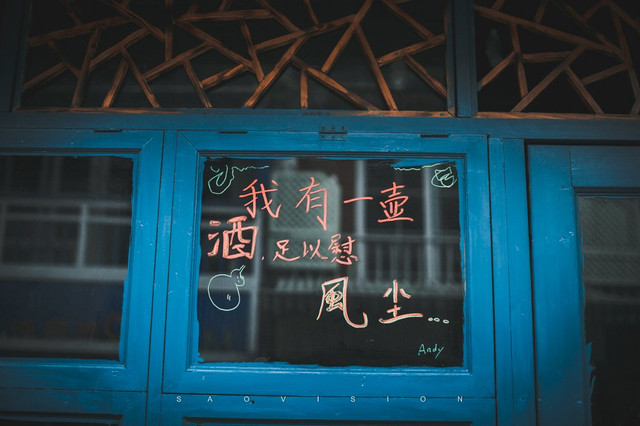 我有一壺
酒.足以慰
風尘...
Andy
SAOVISION